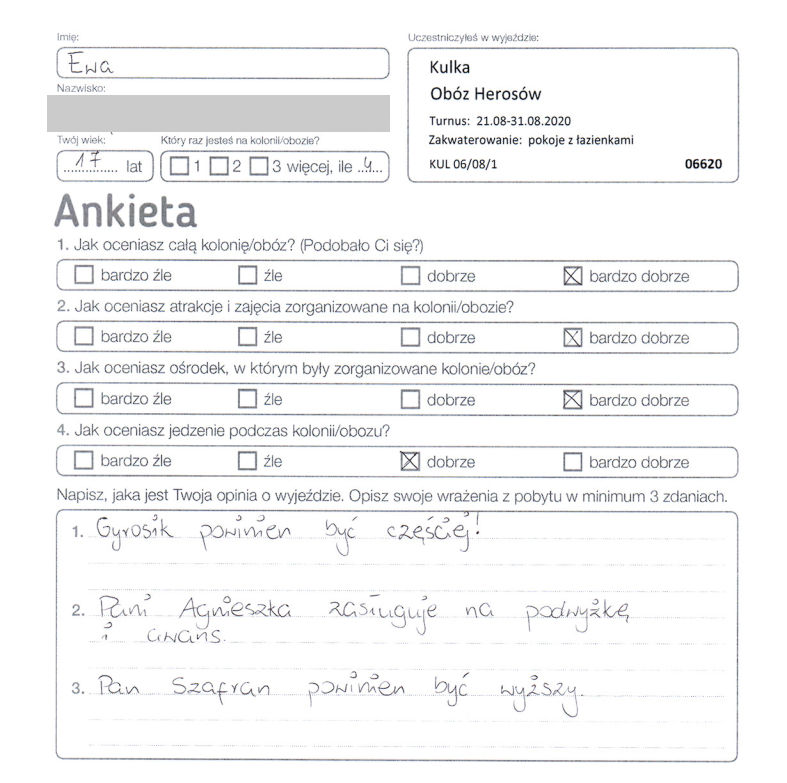 Imię:
Ewa
Nazwisko:
Twój wiek: Który raz jesteś na kolonii/obozie?
17 lat 1 2 3 więcej, ile 4
Uczestniczyłeś w wyjeździe:
Kulka
Obóz Herosów
Turnus: 21.08-31.08.2020
Zakwaterowanie: pokoje z łazienkami
KUL 06/08/1 06620
Ankieta
1. Jak oceniasz całą kolonię/obóz? (Podobało Ci się?)
bardzo źle źle dobrze bardzo dobrze
2. Jak oceniasz atrakcje i zajęcia zorganizowane na kolonii/obozie?
bardzo źle źle dobrze bardzo dobrze
3. Jak oceniasz ośrodek, w którym były zorganizowane kolonie/obóz?
bardzo źle źle dobrze bardzo dobrze
4. Jak oceniasz jedzenie podczas kolonii/obozu?
bardzo źle źle dobrze bardzo dobrze
Napisz, jaka jest Twoja opinia o wyjeździe. Opisz swoje wrażenia z pobytu w minimum 3 zdaniach.
1. Gyrosik powinien być częściej!
2. Pani Agnieszka zasługuje na podwyżkę
i awans.
3. Pan Szafran powinien być wyższy.